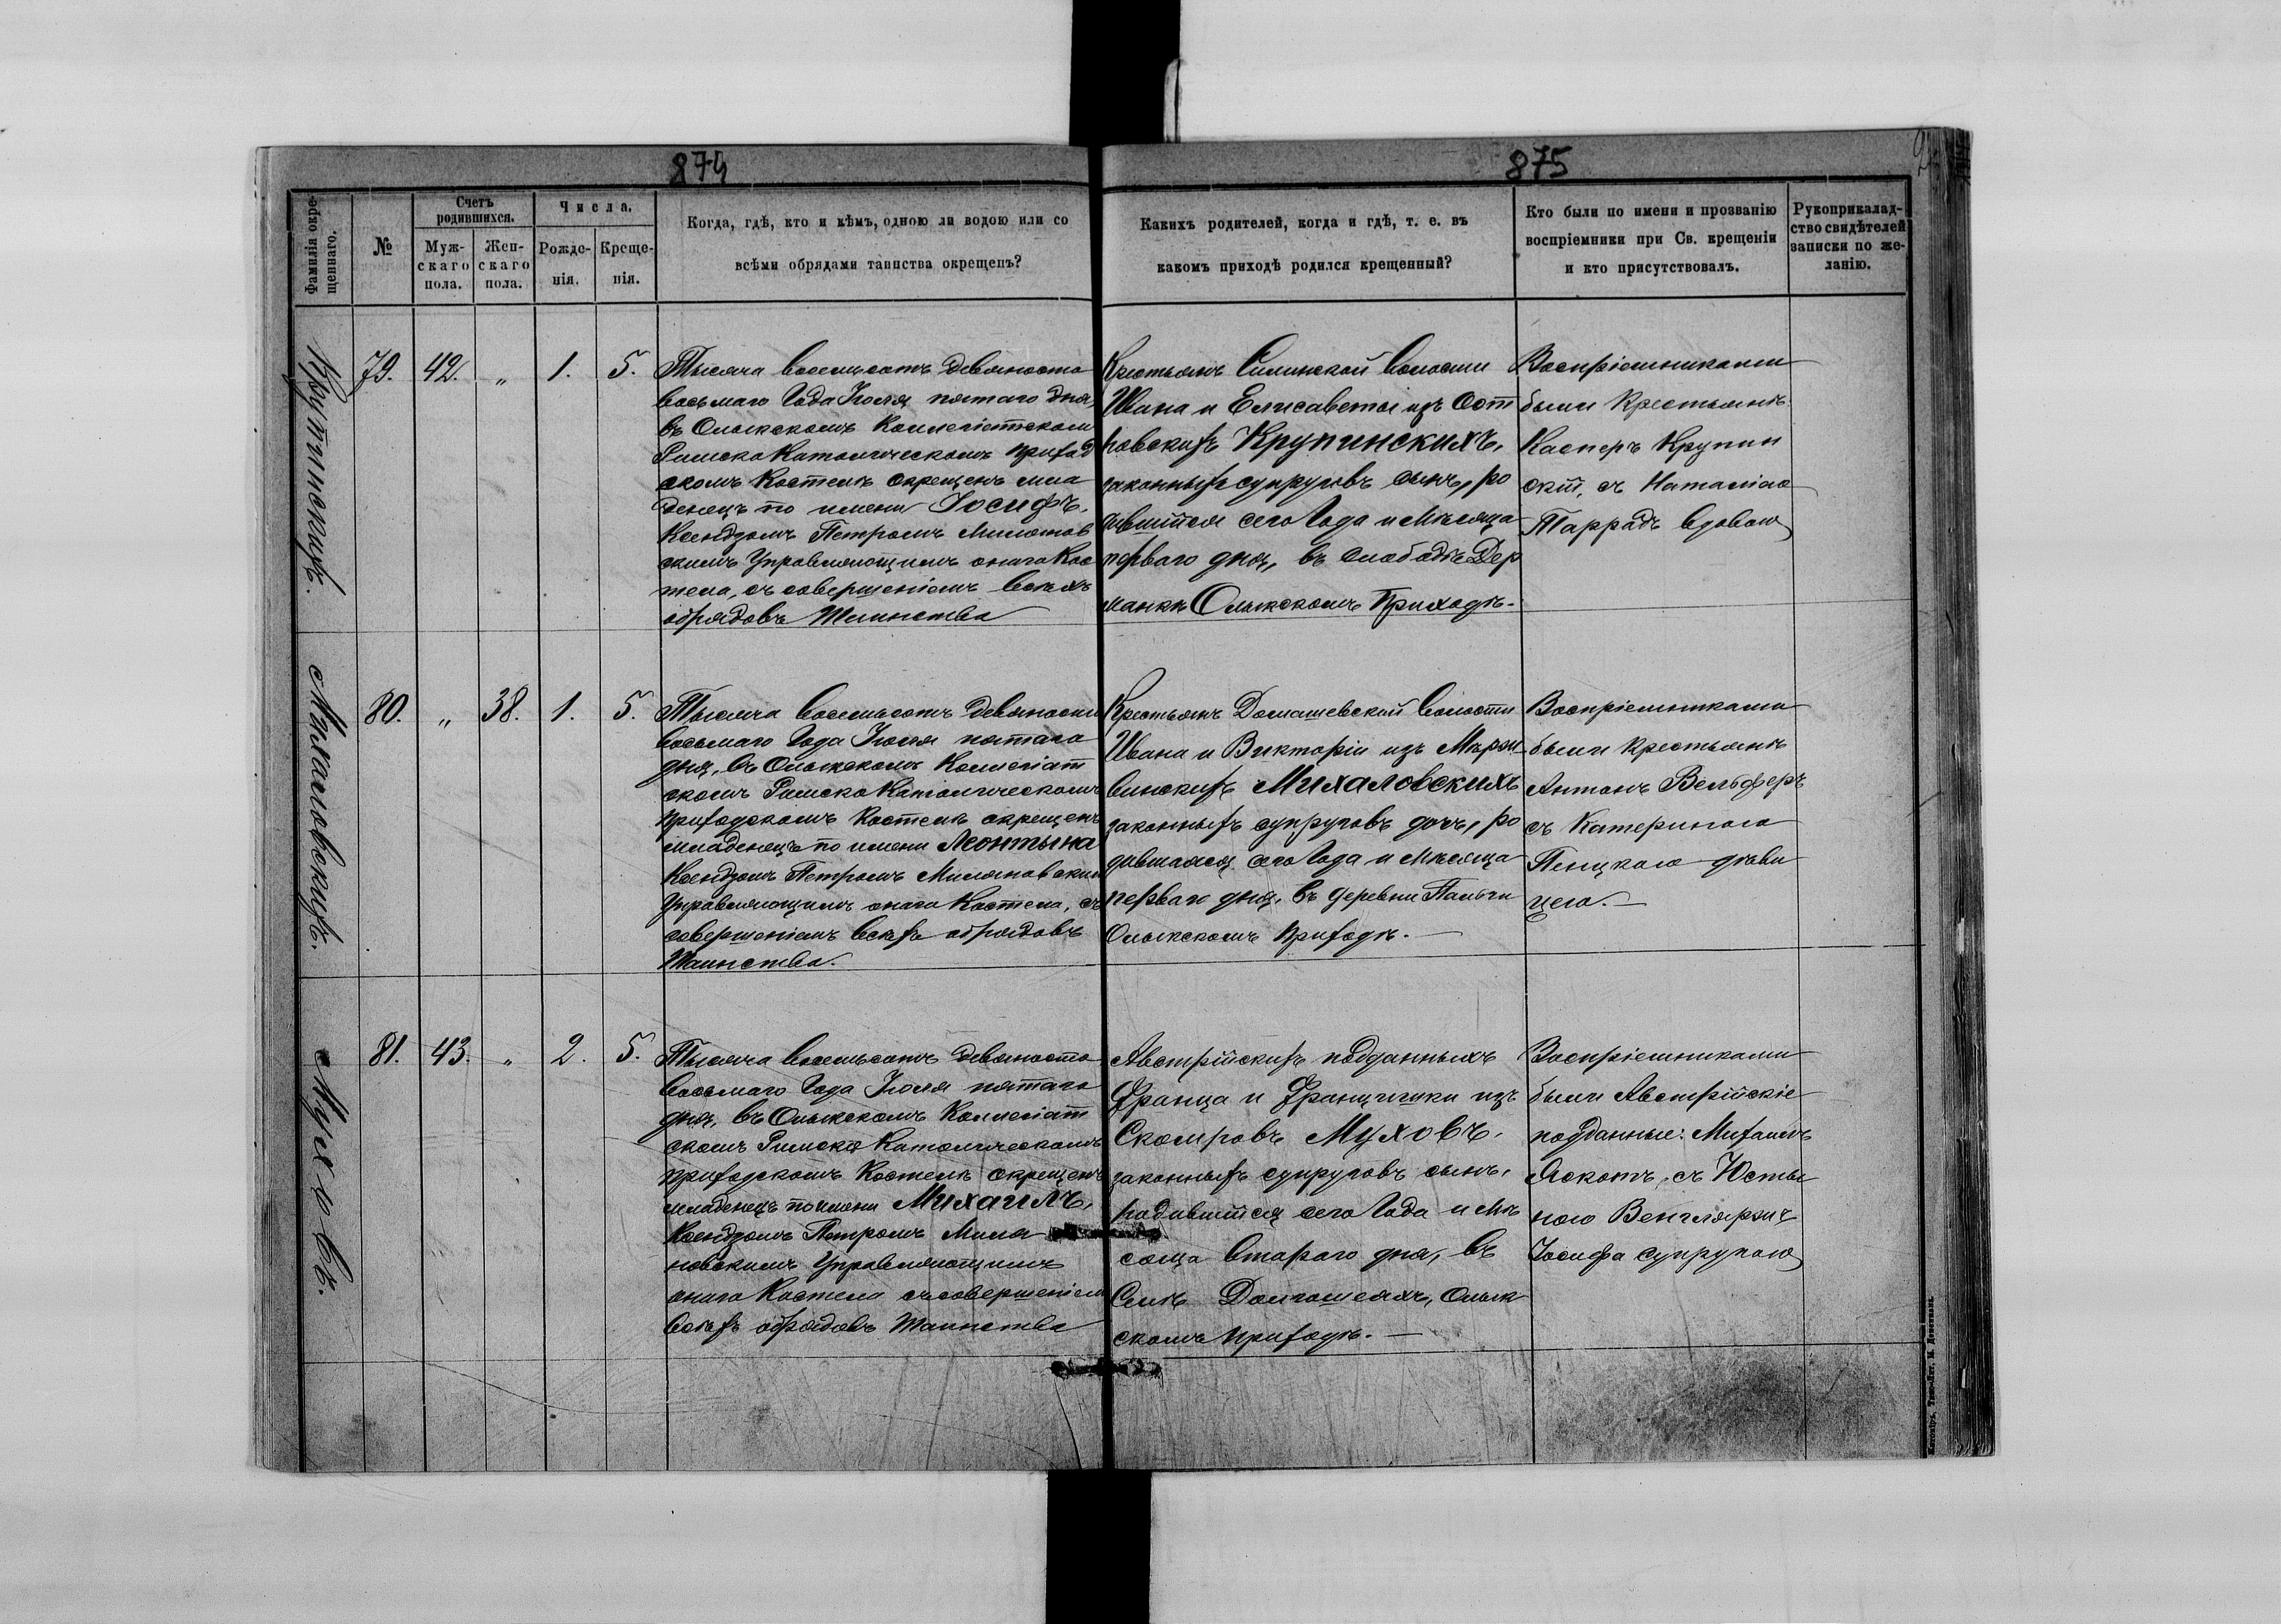 874
875
Фамилія окре-
щеннаго.
№
Счетъ
родившихся.
Муж-
скаго
пола.
Жен-
скаго
пола.
Числа.
Рожде-
нія.
Креще-
нія.
Когда, гдѣ, кто и кѣмъ, одною ли водою или со
всѣми обрядами таинства окрещенъ?
Какихъ родителей, когда и гдѣ, т. е. въ
какомъ приходѣ родился крещенный?
Кто были по имени и прозванію
воспріемники при Св. крещеніи
и кто присутствовалъ.
Рукоприкалад-
ство свидѣтелей
записки по же-
ланію.
Крупинскихъ.
79. 42. „ 1. 5.
Тысяча восемьсотъ девяносто
восьмаго Года Іюля пятаго дня,
въ Олыкскомъ Коллегіатском
Римско Католическомъ приход
скомъ Костелѣ окрещенъ мла
денецъ по имени Іосифъ,
Ксендзомъ Петромъ Милянов
скимъ Управляющимъ онаго Кос
тела, съ совершеніемъ всѣхъ
обрядовъ Таинства
Крестьянъ Силинской волости
Ивана и Елисаветы изъ Сот
ровскихъ Крупинскихъ,
законныхъ супруговъ сынъ, ро
дившійся сего Года и Мѣсяца
перваго дня, въ слободѣ Дер
манкѣ Олыкскомъ Приходѣ.
Воспріемниками
были Крестьянѣ
Касперъ Крупин
скій, съ Наталіею
Таррадъ вдовою
Михаловскихъ.
80. „ 38. 1. 5.
Тысяча восемьсотъ девяносто
восьмаго Года Іюля пятаго
дня, въ Олыкскомъ Коллегіат
скомъ Римско Католическомъ
приходскомъ Костелѣ окрещенъ
младенецъ по имени Леонтына
Ксендзомъ Петромъ Миляновским
Управляющимъ онаго Костела, съ
совершеніемъ всѣхъ обрядовъ
Таинства.
Крестьянъ Домашевской волости
Ивана и Викторіи изъ Мѣрзи
винскихъ Михаловскихъ
законныхъ супруговъ дочь, ро
дившаяся сего Года и Мѣсяца
перваго дня, въ деревни Пальчи
Олыкскомъ приходѣ.
Воспріемниками
были Крестьянѣ
Антонъ Вельферъ
съ Катериною
Пецкою дѣви
цею.
Муховъ.
81. 43. „ 2. 5.
Тысяча восемьсотъ девяносто
восьмаго Года Іюля пятаго
дня, въ Олыкскомъ Коллегіат
скомъ Римско Католическомъ
приходскомъ Костелѣ окрещенъ
младенецъ по имени Михаилъ,
Ксендзомъ Петромъ Миля
новскимъ Управляющимъ
онаго Костела съ совершеніем
всѣхъ обрядовъ Таинства
Австрійскихъ подданныхъ
Франца и Францишки изъ
Скомровъ Муховъ,
законныхъ супруговъ сынъ,
родившійся сего Года и Мѣ
сяца втораго дня, въ
Селѣ Долгошеяхъ, Олык
скомъ приходѣ.
Воспріемниками
были Австрійскіе
подданные: Михаилъ
Яскотъ, съ Юсты
ною Венгляржъ
Іосифа супругою